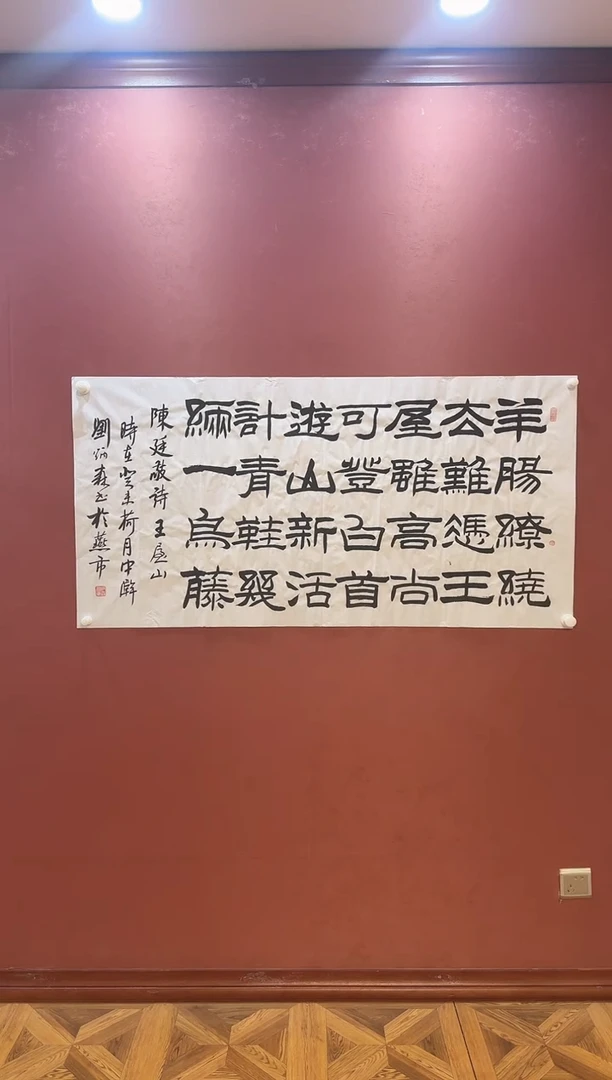 羊腸繚繞
去難憑王
屋雖高尚
可登白首
遊山新活
計青鞋幾
緉一烏藤
陳廷敬詩王屋山
時在癸未荷月中澣
劉炳森书於燕市